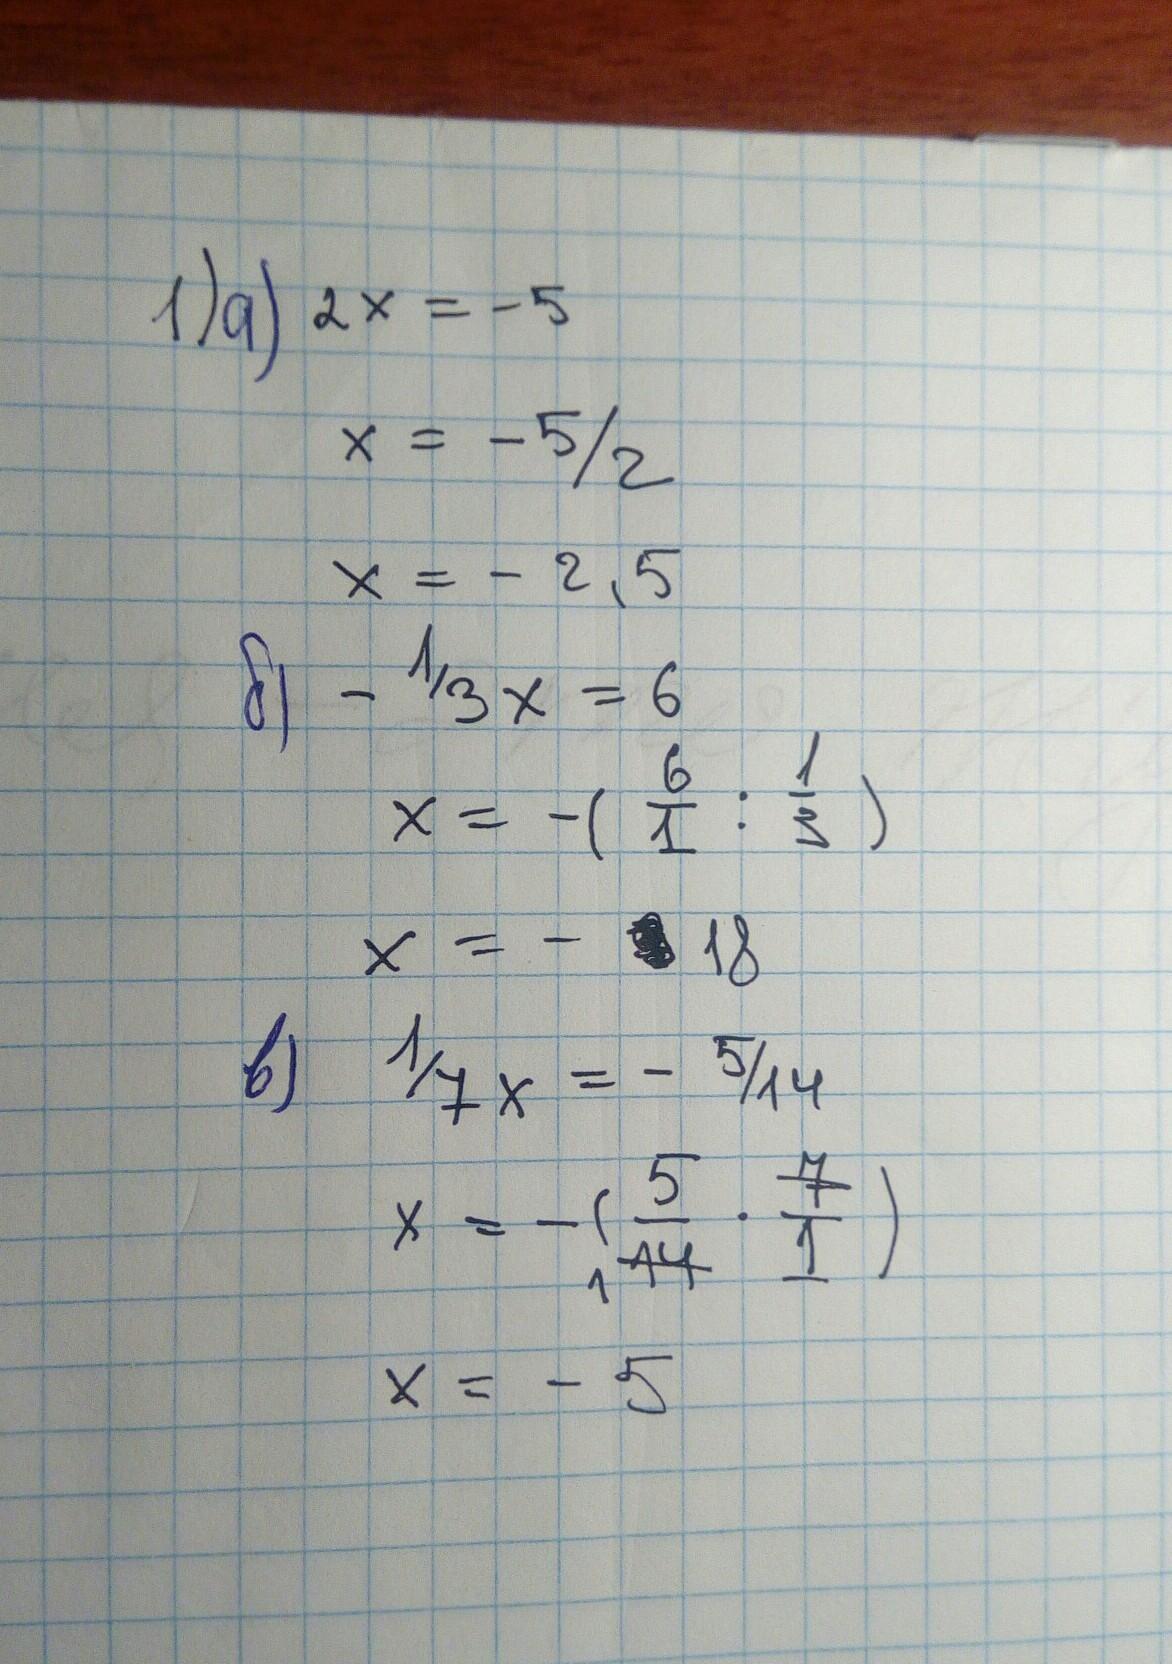 1) а) 2x = -5
x = -5/2
x = -2,5
б) - 1/3 x = 6
x = -( 6/1 : 1/3 )
x = - 18
в) 1/7 x = - 5/14
x = -( 5/14 · 7/1 )
1
x = - 5